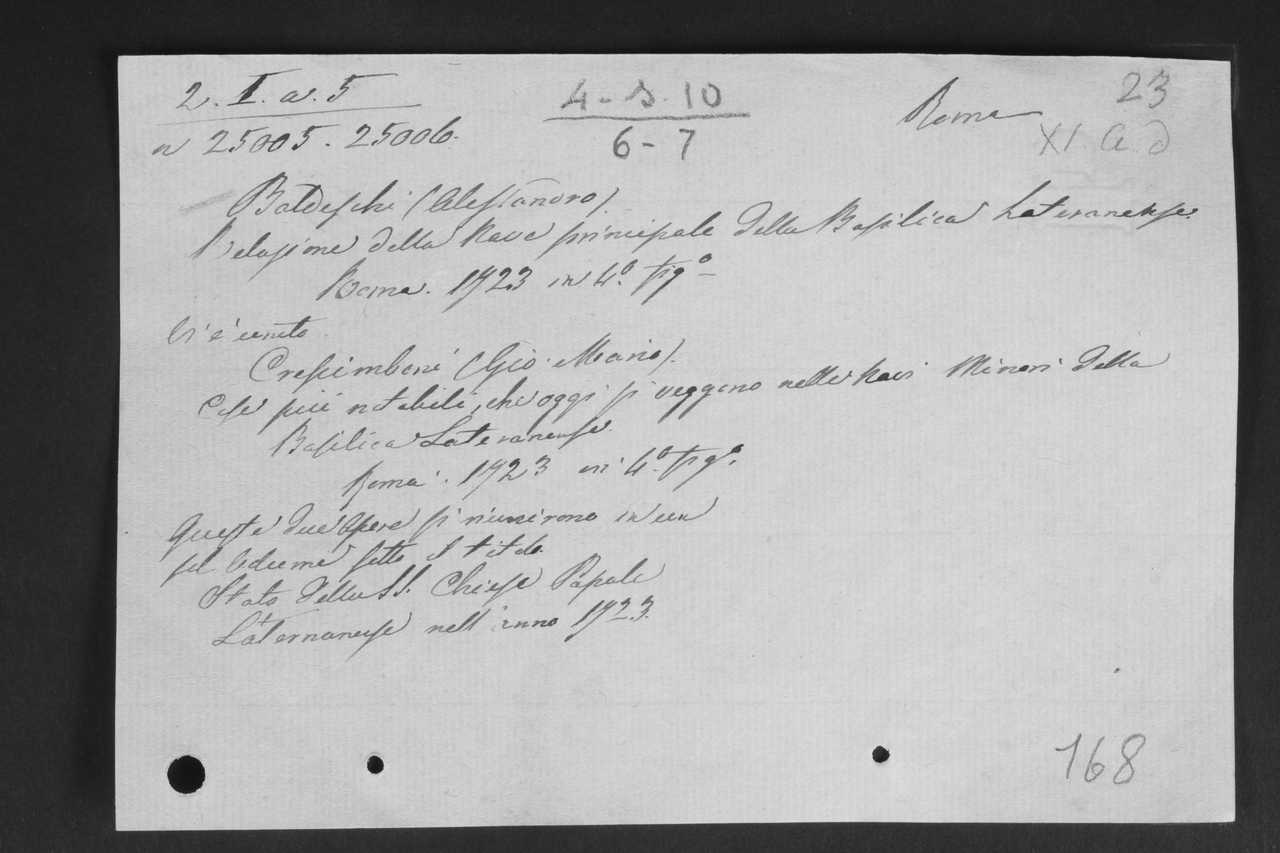 2. I. a. 5
n 25005. 25006.
4 - S. 10
6 - 7
Roma
23
XI. a. d
Baldeschi (Alessandro).
Relazione della Nave principale della Basilica Lateranense
Roma. 1723 in 4.º fig.º
Vi è unito
Crescimbeni (Gio: Mario).
Cose più notabili, che oggi si veggono nelle Navi Minori della
Basilica Lateranense.
Roma. 1723 in 4.º fig.º
Queste due Opere si riunirono in un
sol volume sotto il titolo
Stato della SS. Chiesa Papale
Laternanense nell'anno 1723.
168